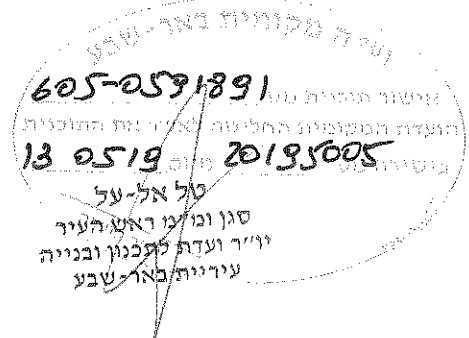 ועדה מקומית באר-שבע
605-0591891
אישור תוכנית מס'
הועדה המקומית החליטה לאשר את התוכנית
13 05 19 20195005
טל אל-על
סגן ומ"מ ראש העיר
יו"ר ועדת לתכנון ובנייה
עיריית באר-שבע